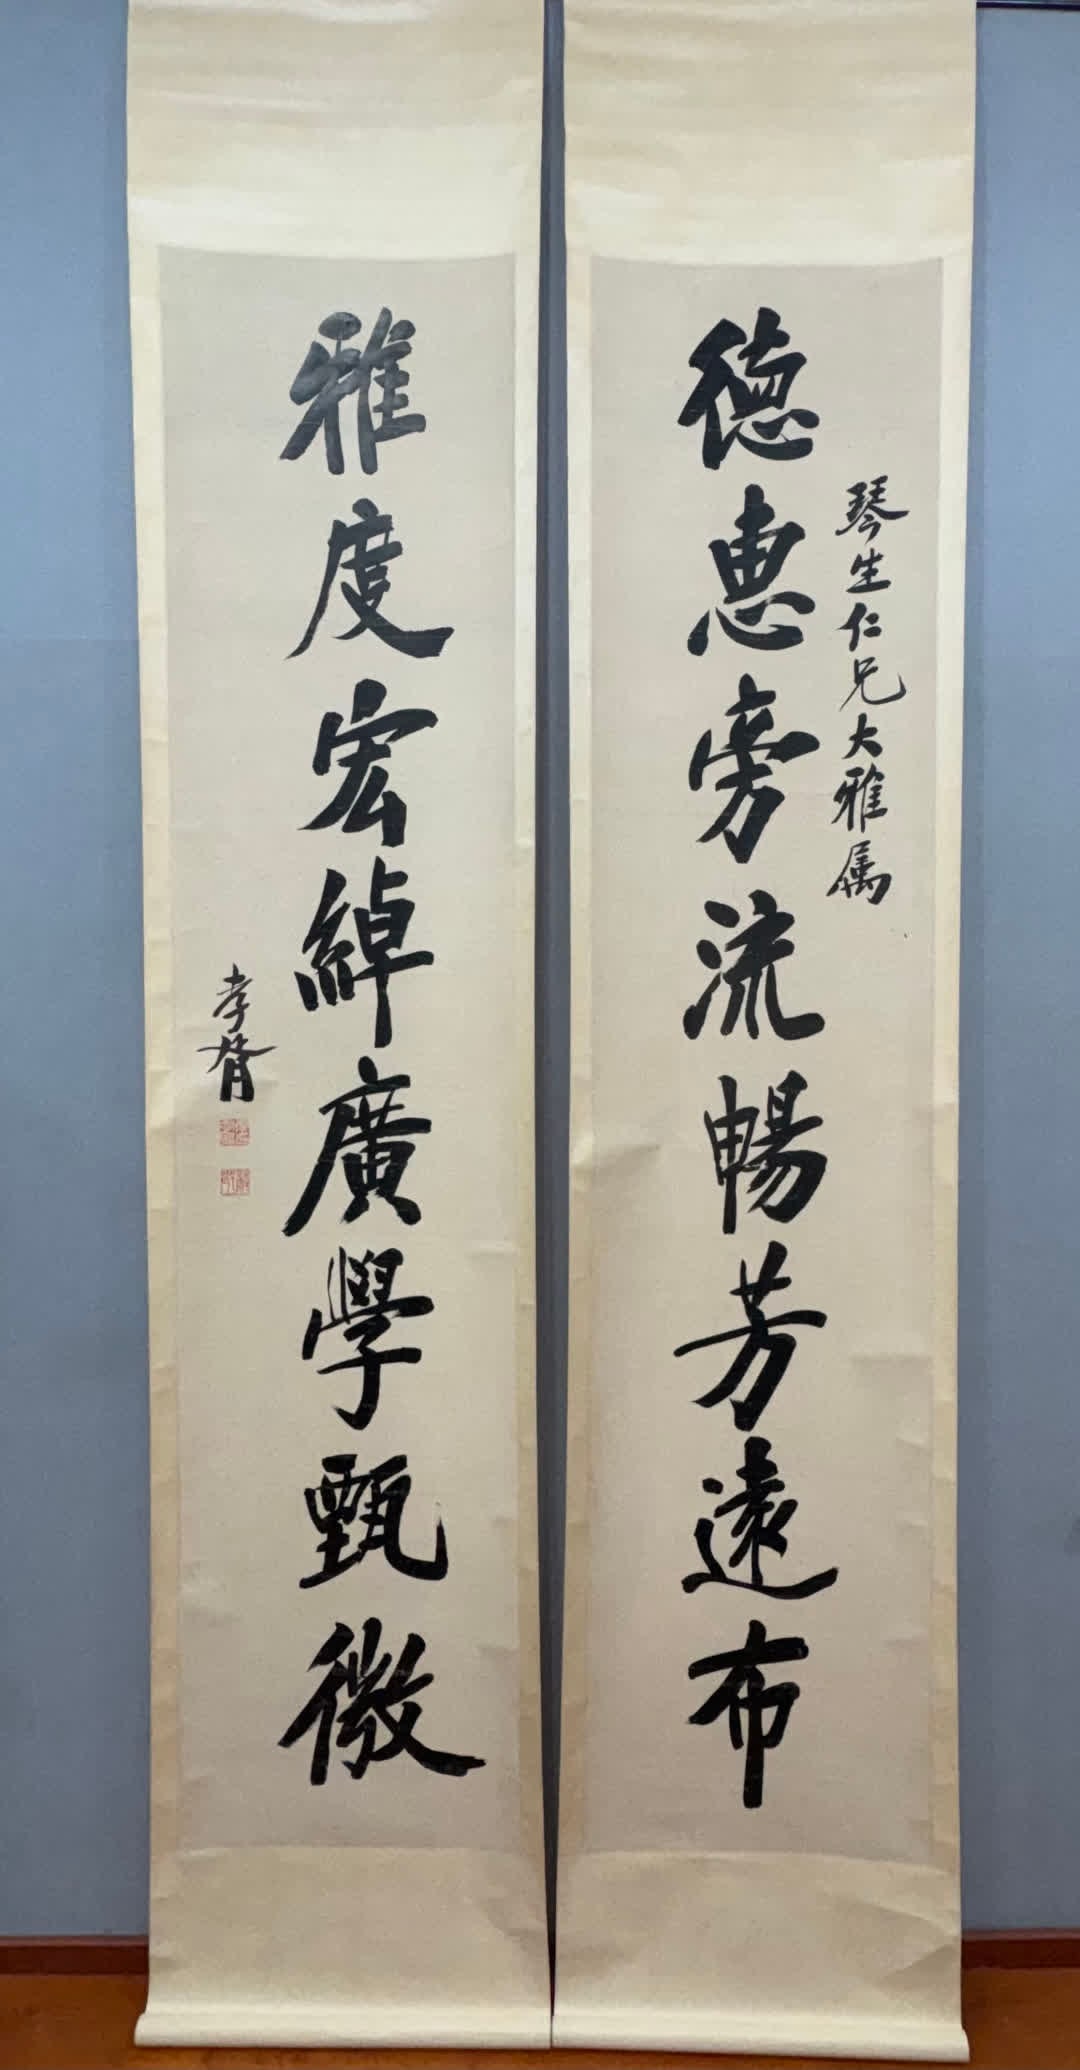 琴生仁兄大雅属
德惠旁流暢芳遠布
雅度宏綽廣學甄微
孝胥